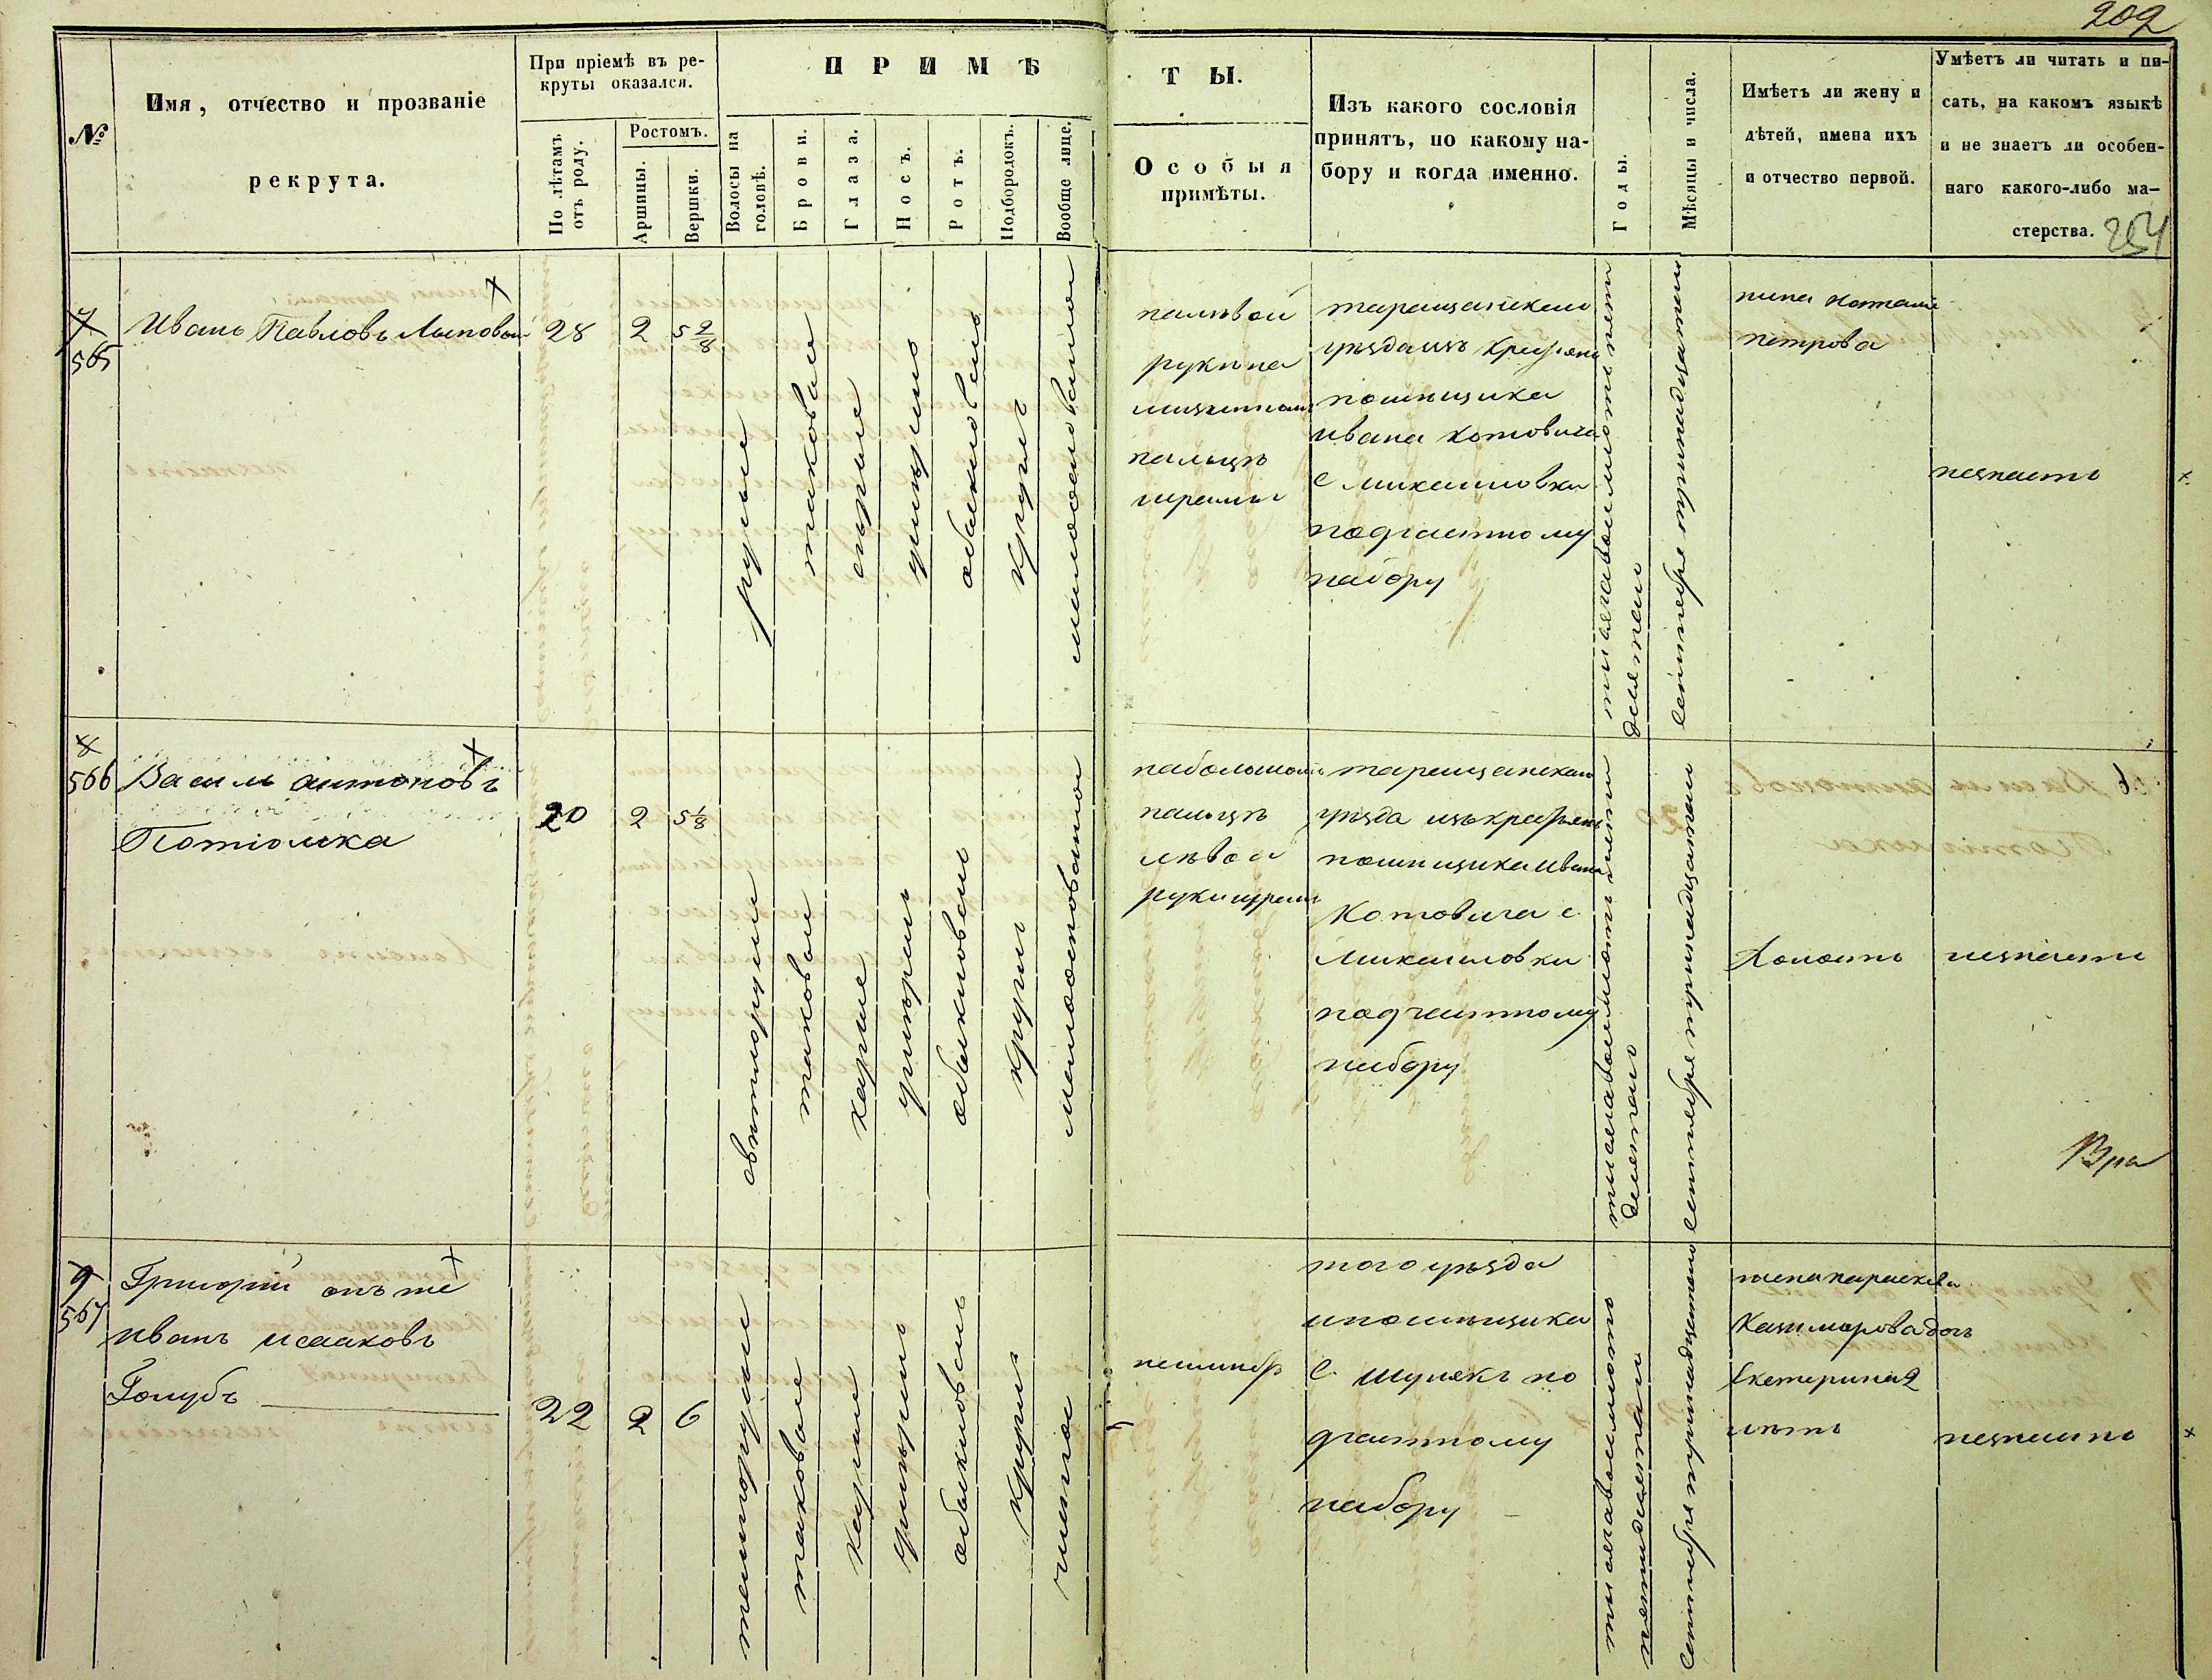 202
№
Имя, отчество и прозваніе
рекрута.
При пріемѣ въ ре-
круты оказался.
По лѣтамъ
отъ роду.
Ростомъ.
Аршины.
Вершки.
ПРИМѢ
ТЫ.
Волосы на
головѣ.
Брови.
Глаза.
Носъ.
Ротъ.
Подбородокъ.
Вообще лице.
Особыя
примѣты.
Изъ какого сословія
принятъ, по какому на-
бору и когда именно.
Годы.
Мѣсяцы и числа.
Имѣетъ ли жену и
дѣтей, имена ихъ
и отчество первой.
Умѣетъ ли читать и пи-
сать, на какомъ языкѣ
и не знаетъ ли особен-
наго какого-либо ма-
стерства.
254
7
565
Иванъ Павловъ Лыповый
28
2
5 2/8
русые
таковые
сѣрые
умѣрено
обыкновено
круглъ
налѣвой
руки на
палцѣ
шрамъ
таращанскаго
уѣзда изъ крестянъ
помѣщика
ивана котовича
с михаиловки
подчастному
набору
сентября тринадцатаго
жена наталия
петрова
незнаетъ
8
566
Василь антоновъ
Потіомка
20
2
5 1/8
свѣтлорусые
таковые
каріе
умѣренъ
обыкновенъ
круглъ
набольшомъ
пальцѣ
лѣвой
руки шрамъ
таращанскаго
уѣзда изъ крестянъ
помѣщика Ивана
Котовича с
Михаиловки
подчастному
набору
сентября тринадцатаго
Холостъ
незнаетъ
9
567
Григорій онъ же
иванъ исааковъ
Голубъ
22
2
6
темнорусые
таковые
каріе
умѣрено
обыкновенъ
круглъ
чистое
неимѣетъ
того уѣзда
ипомѣщика
с. Шулякъ по
дчастному
набору
сентября тринадцатого
жена параскева
Казимирова дочь
Екатерина 2
лѣтъ
незнаетъ